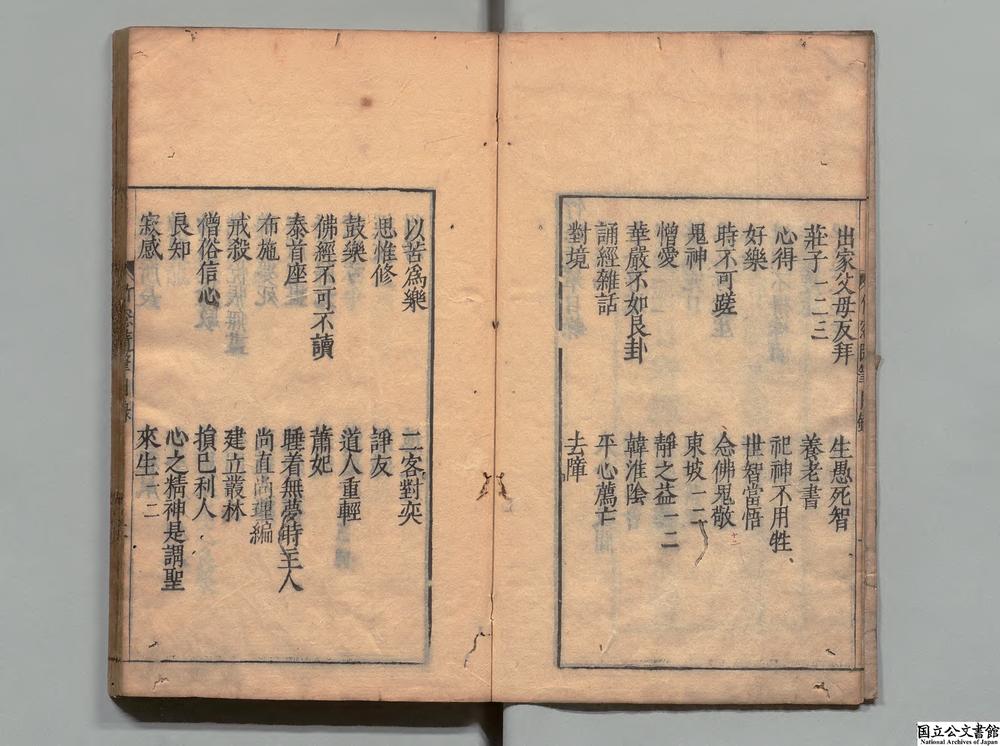 出家父母反拜　生愚死智
莊子一二三　養老書
心得　祀神不用牲
好樂　世智當悟
時不可蹉　念佛鬼敬
鬼神　東坡一二
憎愛　靜之益一二
華嚴不如艮卦　韓淮陰
誦經雜話　平心薦亡
對境　去障
以苦爲樂　二客對奕
思惟修　諍友
鼓樂　道人重輕
佛經不可不讀　蕭妃
泰首座　睡着無夢時主人
布施　尚直尚理編
戒殺　建立叢林
僧俗信心　損己利人
良知　心之精神是謂聖
寂感　來生一二
国立公文書館
National Archives of Japan